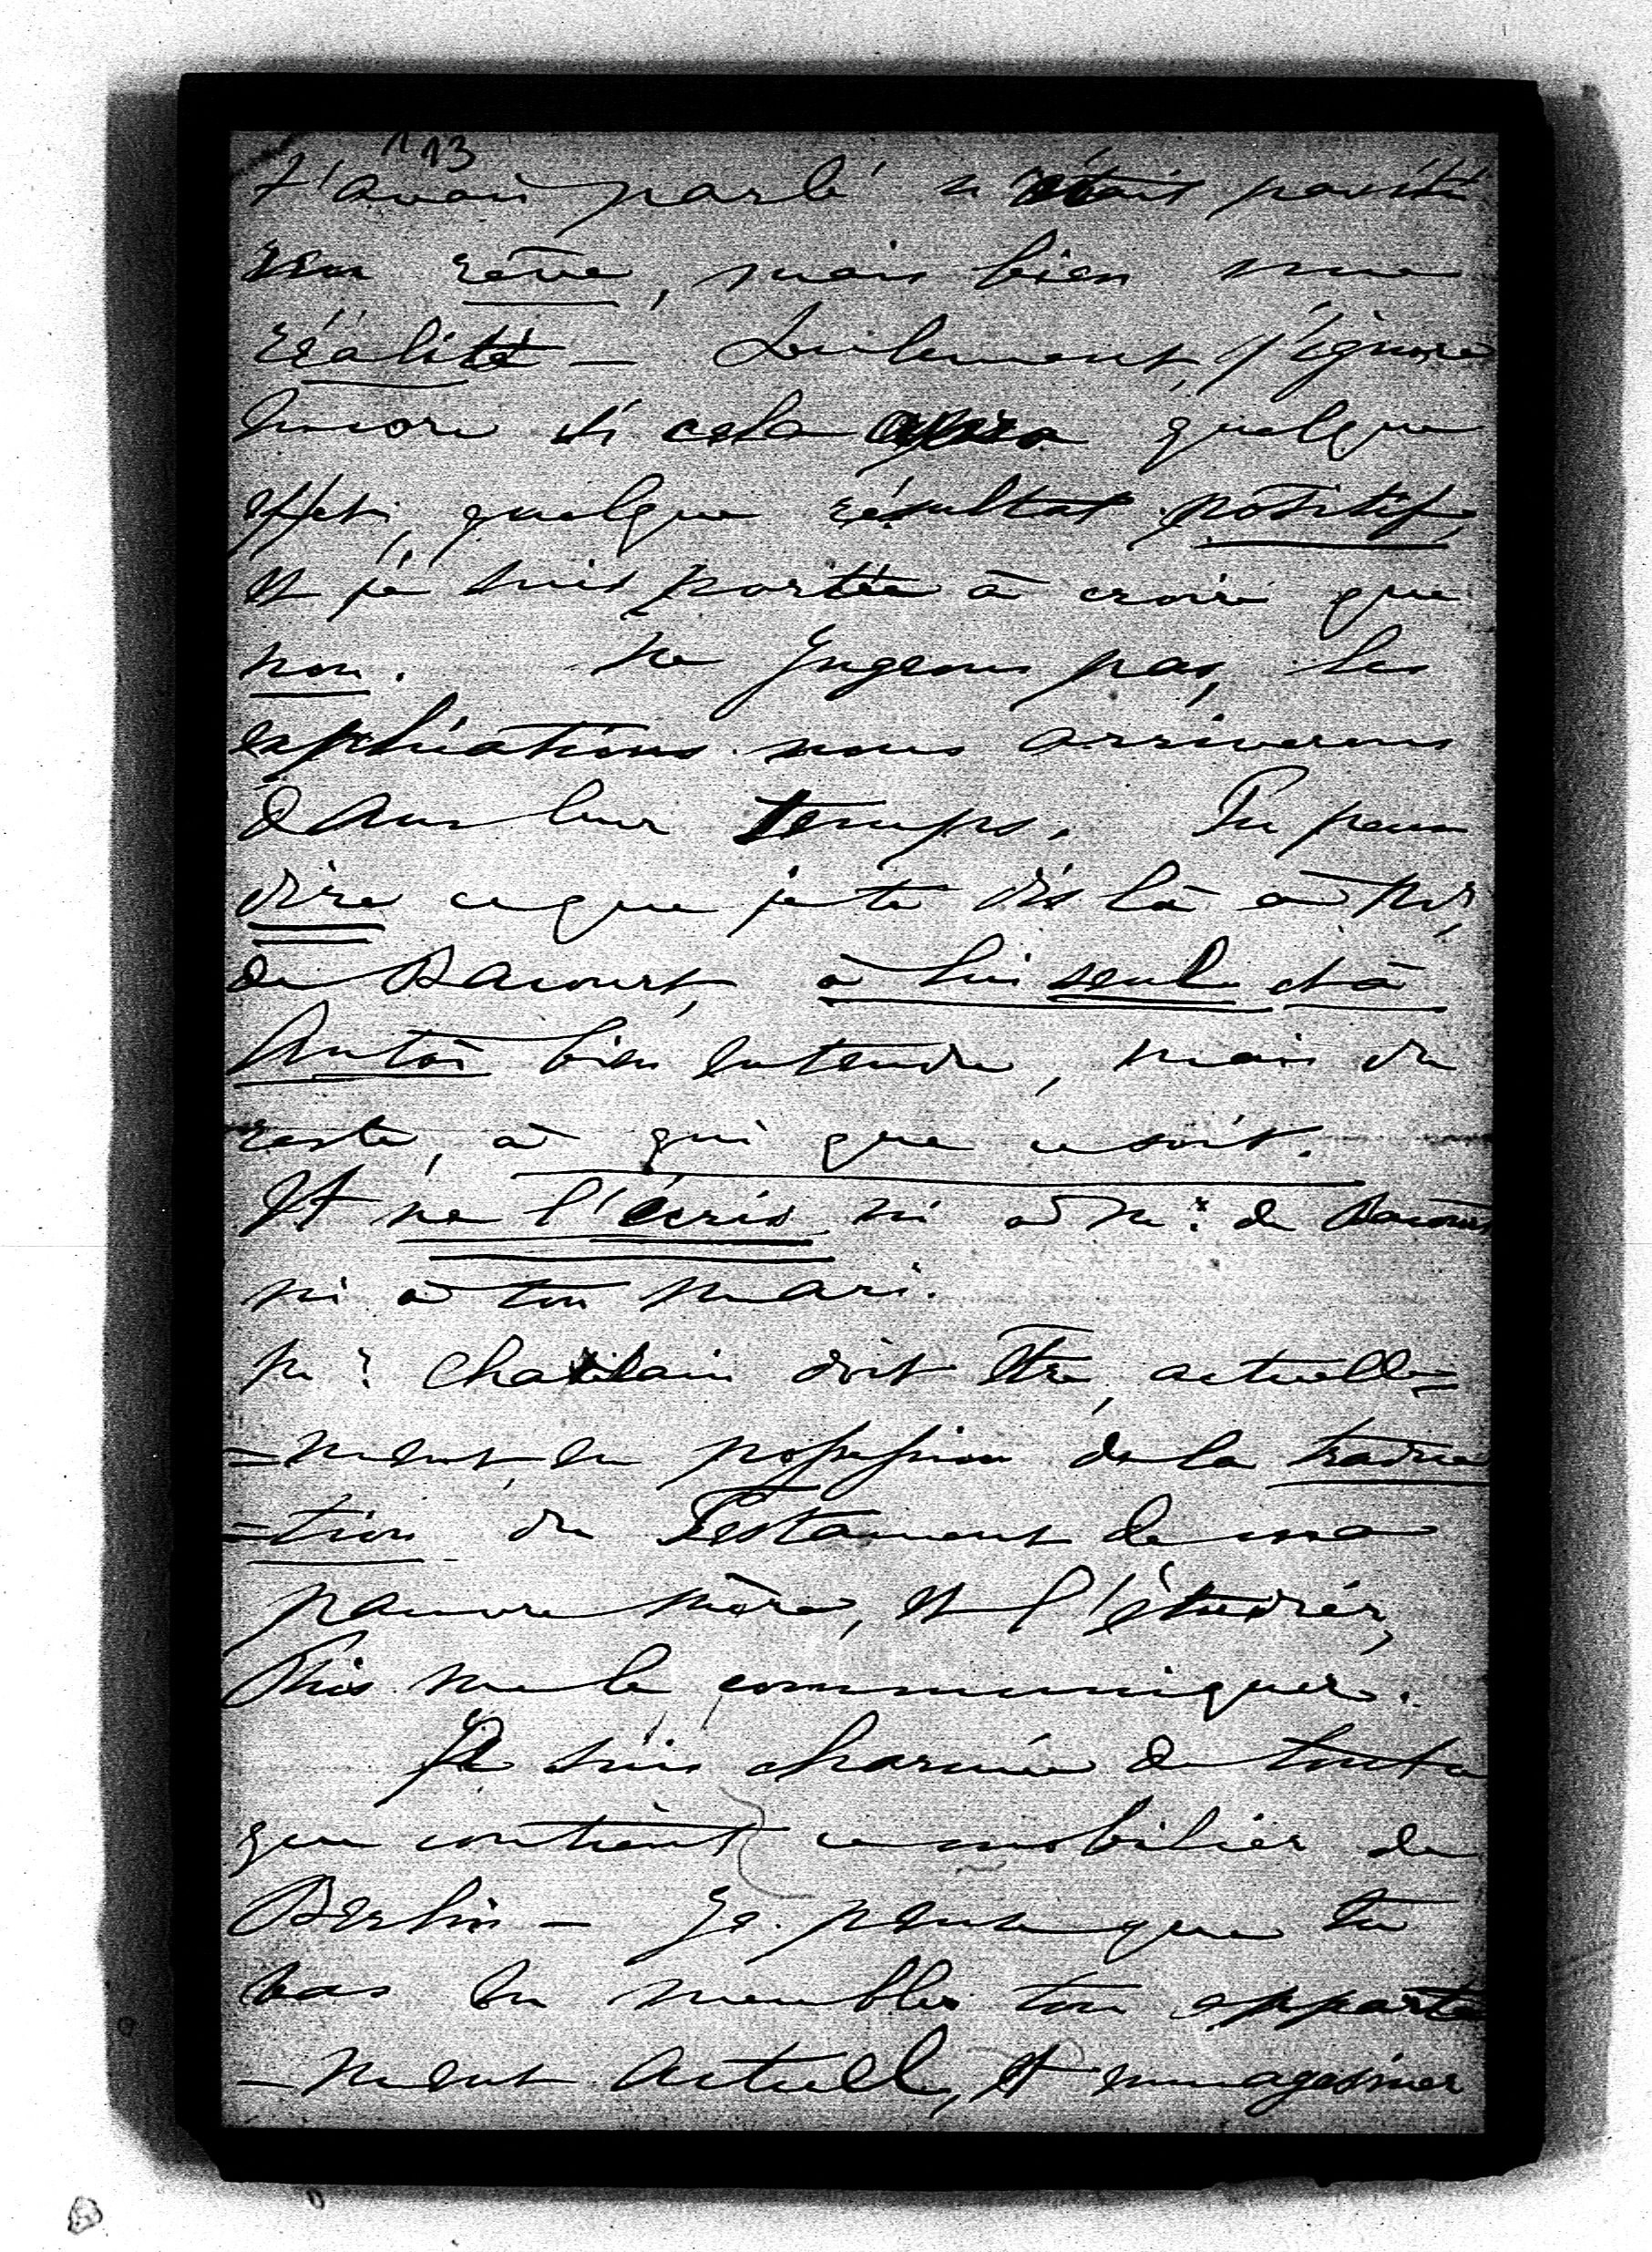 113
t'avais parlé n'était
un rêve, mais bien une
réalité — Seulement, j'ignore
encore si cela aura quelque
effet, quelque résultat positif,
et je suis portée à croire que
non. Ne jugeons pas, les
explications nous arriverons
dans leur temps. Tu peux
dire ce que je te dis là à Mr
de Bacourt, à lui seul et à
Antoi bien entendu, mais du
reste, à qui que ce soit.
Et ne l'écris ni à Mr: de Bacourt
ni à ton mari.
Mr: Chatelain doit être, actuelle=
=ment, en possession de la traduc
=tion du Testament de ma
pauvre mère, et l'étudier,
Puis me le communiquer.
Je suis charmée de tout ce
que contient ce mobilier de
Berlin — Je pense que tu
vas en meubler ton apparte
-ment actuel, et emmagasiner